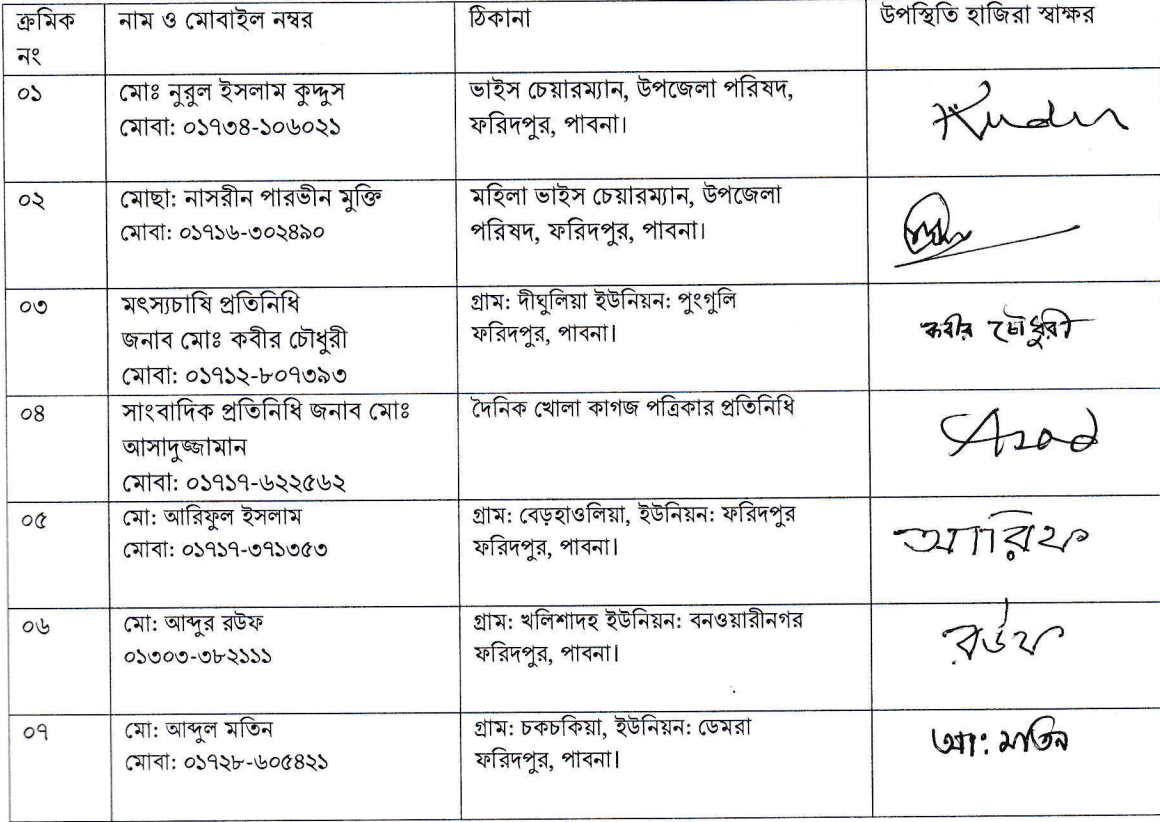 ক্রমিক নং
নাম ও মোবাইল নম্বর
ঠিকানা
উপস্থিতি হাজিরা স্বাক্ষর
০১
মোঃ নুরুল ইসলাম কুদ্দুস
মোবা: ০১৭৩৪-১০৬০২১
ভাইস চেয়ারম্যান, উপজেলা পরিষদ,
ফরিদপুর, পাবনা।
Kudu
০২
মোছা: নাসরীন পারভীন মুক্তি
মোবা: ০১৭১৬-৩০২৪৯০
মহিলা ভাইস চেয়ারম্যান, উপজেলা
পরিষদ, ফরিদপুর, পাবনা।
০৩
মৎস্যচাষি প্রতিনিধি
জনাব মোঃ কবীর চৌধুরী
মোবা: ০১৭১২-৮০৭৩৯৩
গ্রাম: দীঘুলিয়া ইউনিয়ন: পুংগুলি
ফরিদপুর, পাবনা।
কবীর চৌধুরী
০৪
সাংবাদিক প্রতিনিধি জনাব মোঃ
আসাদুজ্জামান
মোবা: ০১৭১৭-৬২২৫৬২
দৈনিক খোলা কাগজ পত্রিকার প্রতিনিধি
Asad
০৫
মো: আরিফুল ইসলাম
মোবা: ০১৭১৭-৩৭১৩৫৩
গ্রাম: বেড়হাওলিয়া, ইউনিয়ন: ফরিদপুর
ফরিদপুর, পাবনা।
আরিফ
০৬
মো: আব্দুর রউফ
০১৩০৩-৩৮২১১১
গ্রাম: খলিশাদহ ইউনিয়ন: বনওয়ারীনগর
ফরিদপুর, পাবনা।
রউফ
০৭
মো: আব্দুল মতিন
মোবা: ০১৭২৮-৬০৫৪২১
গ্রাম: চকচকিয়া, ইউনিয়ন: ডেমরা
ফরিদপুর, পাবনা।
আ: মতিন